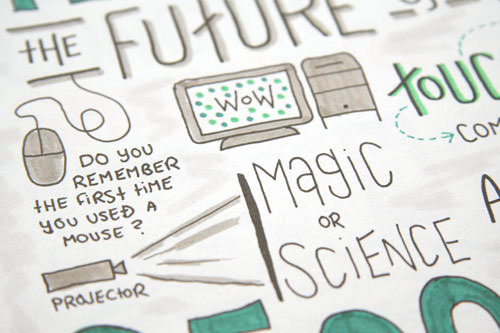 THE FUTURE
WOW
TOUC
COM
DO YOU
REMEMBER
THE FIRST TIME
YOU USED A
MOUSE?
MAGIC
OR
SCIENCE
A
PROJECTOR